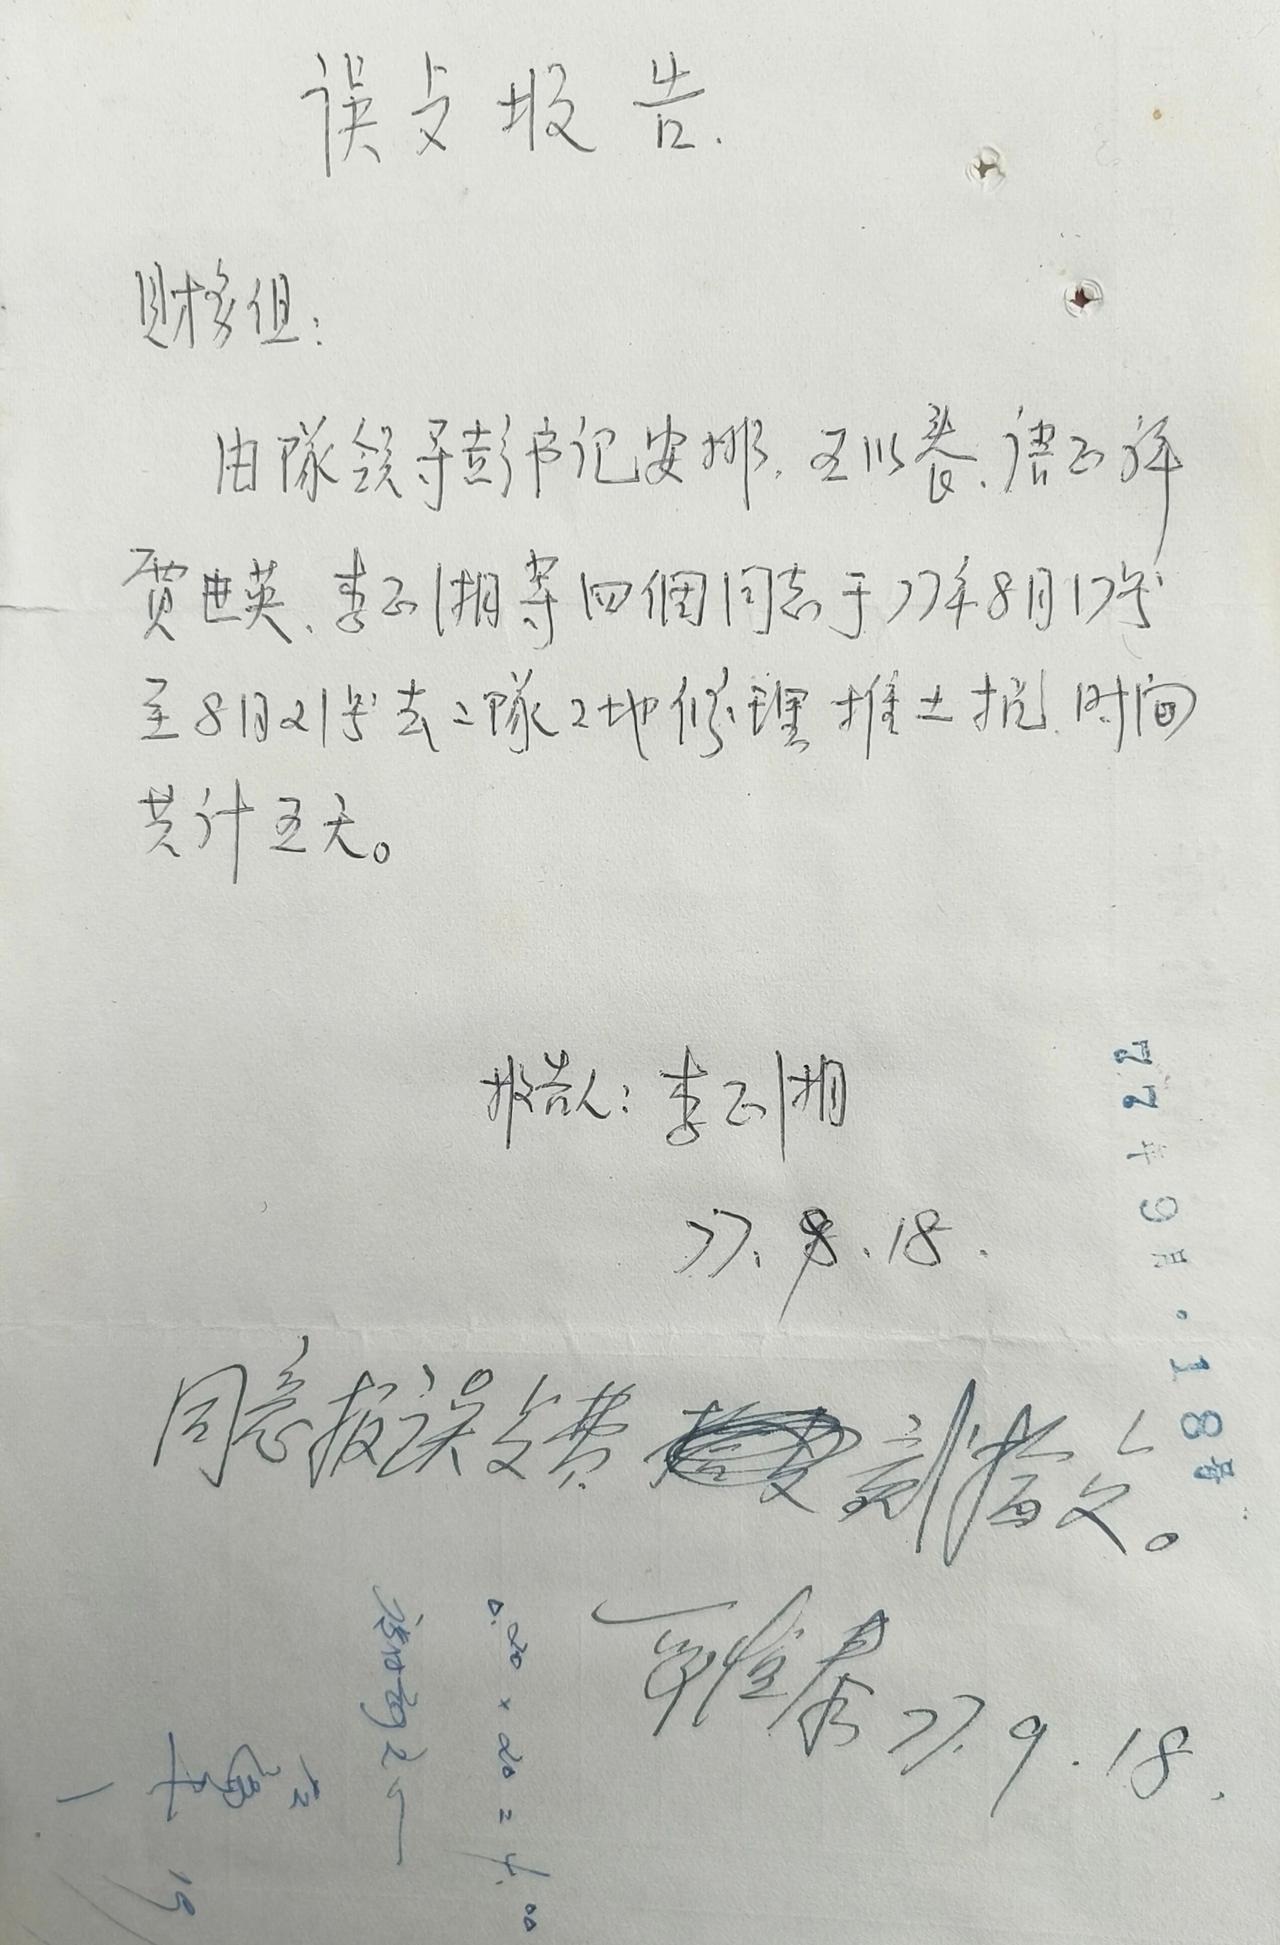 误支报告.
财务组:
由隊领导彭书记安排.王以春.唐正祥
贾世英.李正湘等四個同志于77年8月17号
至8月21号去二隊工地修理推土机.时间
共计五天。
报告人:李正湘
77.9.18.
77年9月.18号
同意报误支费
77.9.18.
0.20×20=4.00